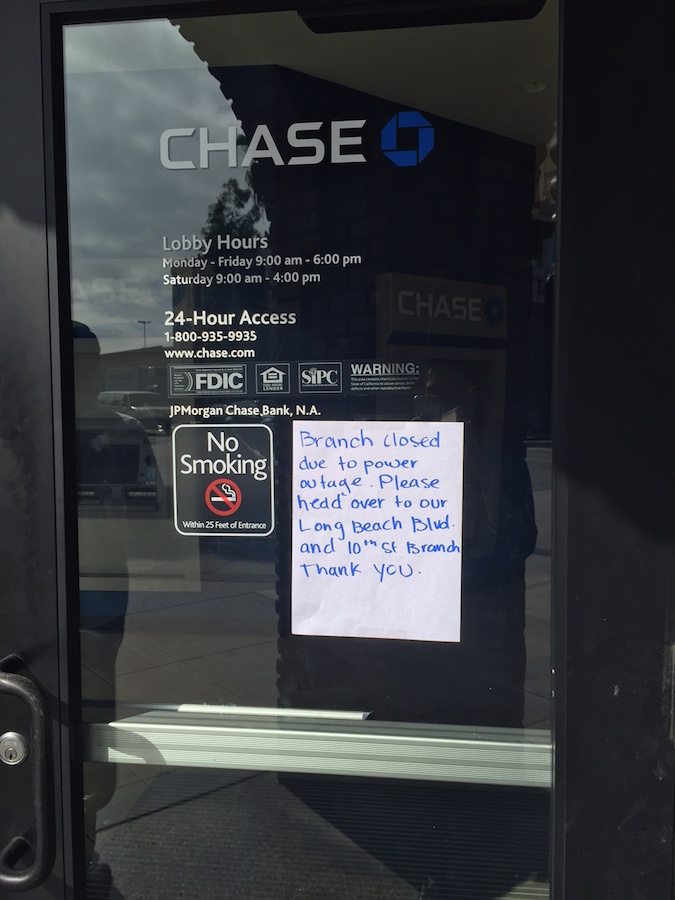 CHASE
Lobby Hours
Monday - Friday 9:00 am - 6:00 pm
Saturday 9:00 am - 4:00 pm
CHASE
24-Hour Access
1-800-935-9935
www.chase.com
FDIC
SIPC
WARNING:
JPMorgan Chase Bank, N.A.
No
Smoking
Within 25 Feet of Entrance
Branch closed
due to power
outage. Please
head over to our
Long Beach Blvd.
and 10th St Branch
Thank you.